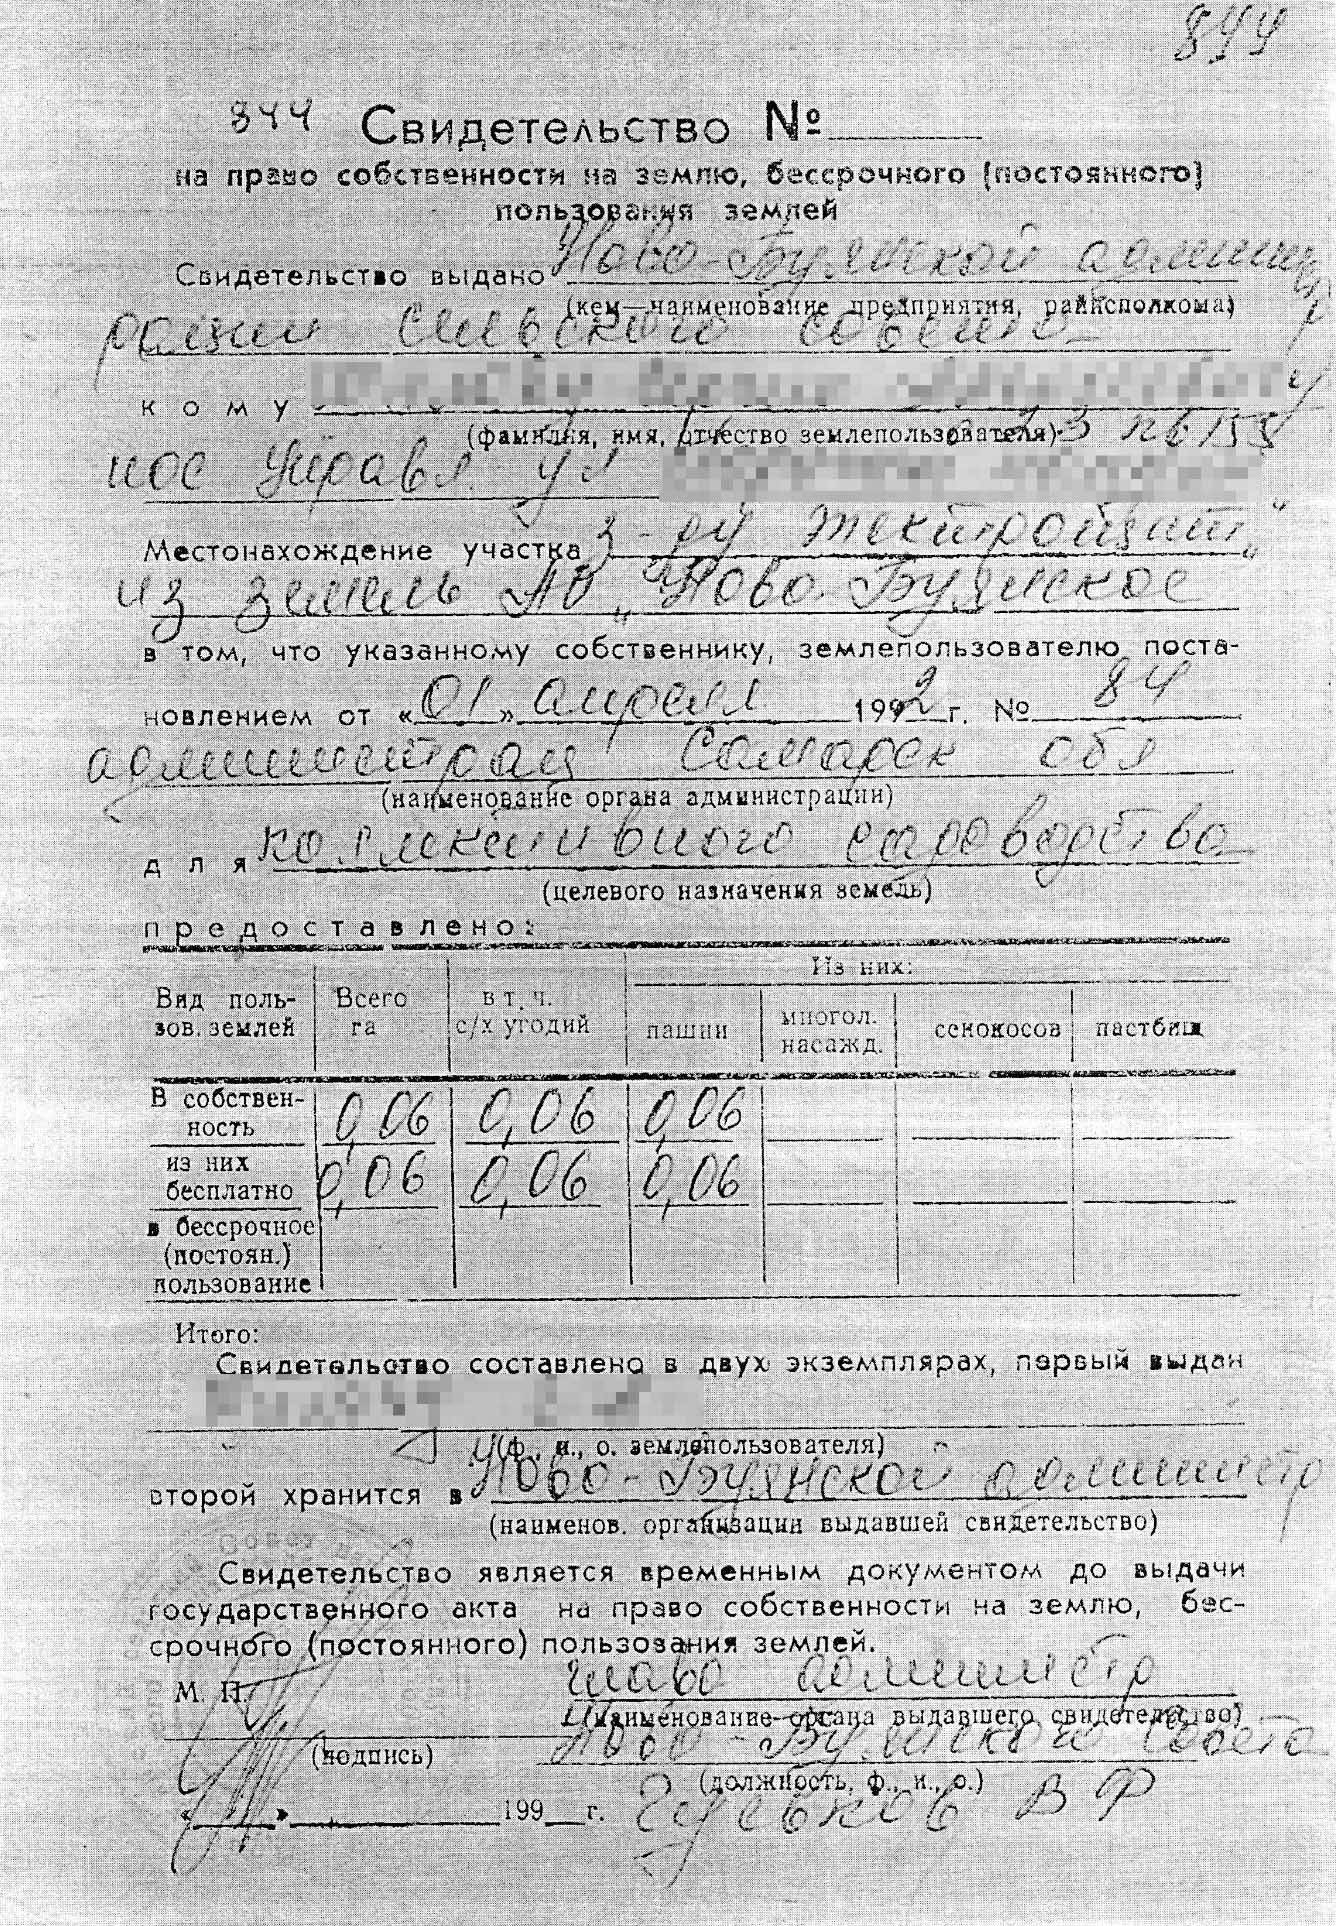 844
844 Свидетельство №
на право собственности на землю, бессрочного (постоянного)
пользования землей
Свидетельство выдано Ново-Буянской админист
(кем—наименование предприятия, райисполкома)
рации сельского совета
кому
(фамилия, имя, отчество землепользователя)
пос Управл ул
Местонахождение участка
из земель АО „Ново-Буянское
в том, что указанному собственнику, землепользователю поста-
новлением от «01» апреля 1992 г. № 84
администрац Самарск обл
(наименование органа администрации)
для коллективного садоводства
(целевого назначения земель)
предоставлено:
Из них:
Вид поль- Всего в т. ч. многол.
зов. землей га с/х угодий пашни насажд. сенокосов пастбищ
В собствен-
ность 0,06 0,06 0,06
из них
бесплатно 0,06 0,06 0,06
в бессрочное
(постоян.)
пользование
Итого:
Свидетельство составлено в двух экземплярах, первый выдан
(ф., и., о. землепользователя)
второй хранится в Ново-Буянской администр
(наименов. организации выдавшей свидетельство)
Свидетельство является временным документом до выдачи
государственного акта на право собственности на землю, бес-
срочного (постоянного) пользования землей.
М. П. глава администр
(наименование органа выдавшего свидетельство)
Ново-Буянского Совета
(подпись) (должность, ф., и., о.)
« » 199 г. В Ф